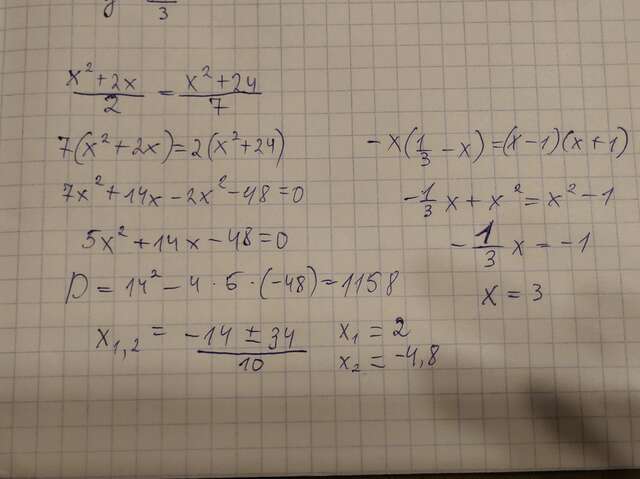 3
(x² + 2x)/2 = (x² + 24)/7
7(x² + 2x) = 2(x² + 24)
7x² + 14x - 2x² - 48 = 0
5x² + 14x - 48 = 0
D = 14² - 4 · 5 · (-48) = 1158
x₁,₂ = (-14 ± 34)/10
x₁ = 2
x₂ = -4,8
- x(1/3 - x) = (x - 1)(x + 1)
- 1/3 x + x² = x² - 1
- 1/3 x = -1
x = 3